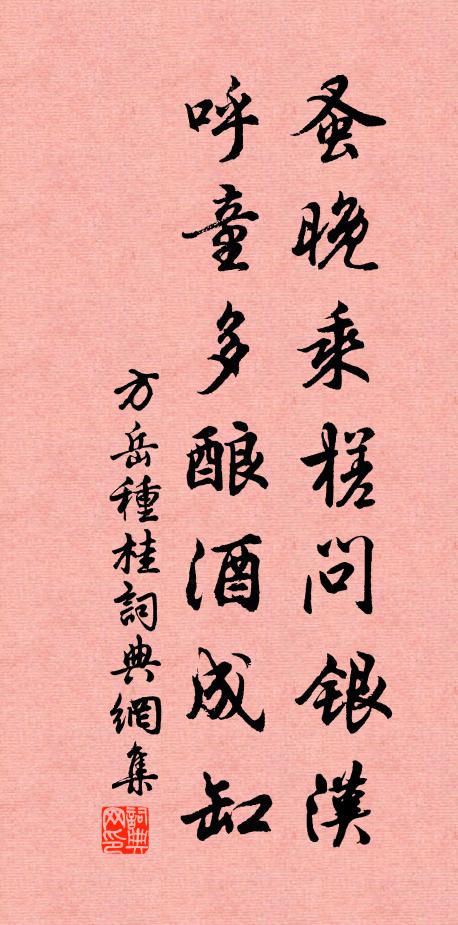 蚤晚乘槎问银汉
呼童多酿酒成缸
方岳種桂詞典網集
詞典网印